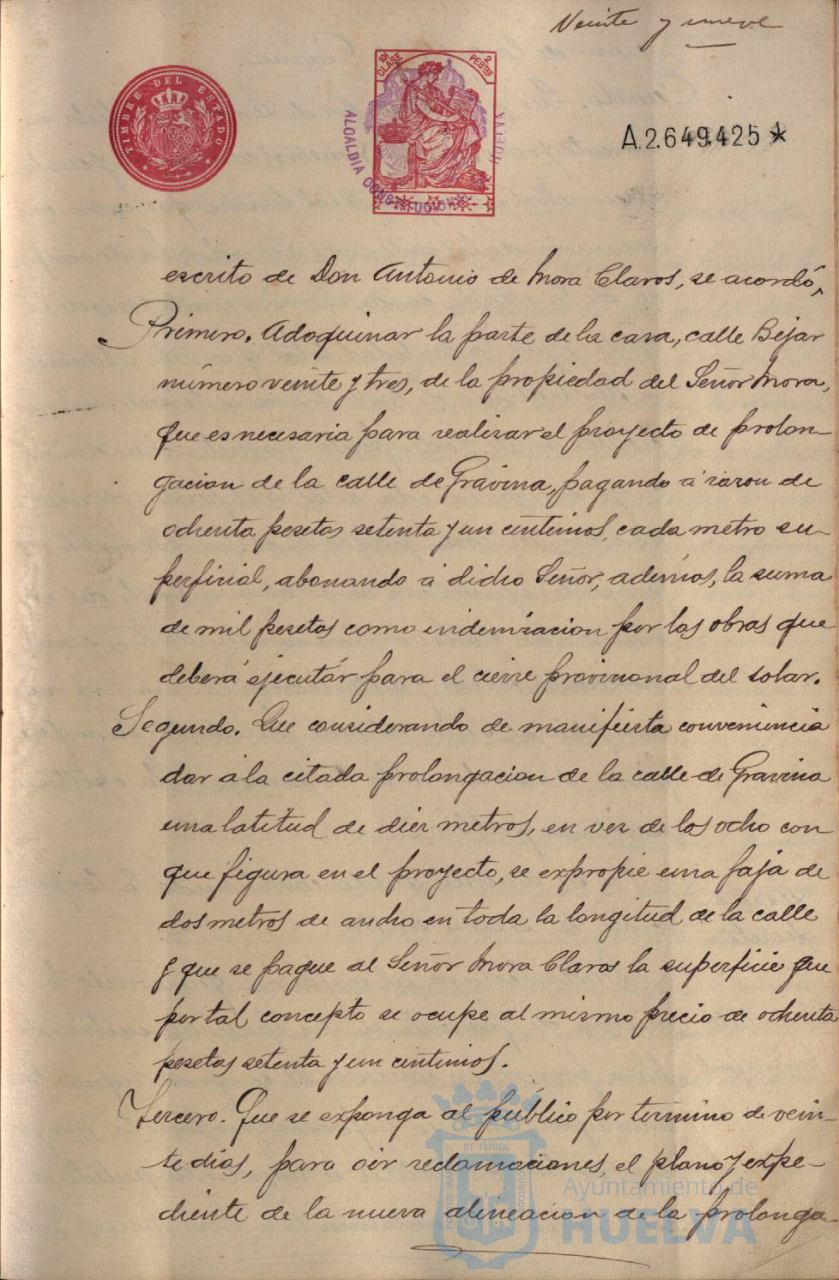 Veinte y nueve
TIMBRE DEL ESTADO
10ª CLASE
2 PESETAS
ALCALDIA CONSTITUCIONAL HUELVA
A.2.649.425*
escrito de Don Antonio de Mora Claros, se acordó,
Primero. Adoquinar la parte de la casa, calle Béjar
número veinte y tres, de la propiedad del Señor Mora,
que es necesaria para realizar el proyecto de prolon-
gacion de la calle de Gravina, pagando á razon de
ochenta pesetas setenta y un centimos, cada metro su-
perficial, abonando á dicho Señor, ademas, la suma
de mil pesetas como indemizacion por las obras que
deberá ejecutár para el cierre provisional del solar.
Segundo. Que considerando de manifiesta conveniencia
dar á la citada prolongacion de la calle de Gravina
una latitud de diez metros, en vez de los ocho con
que figura en el proyecto, se expropie una faja de
dos metros de ancho en toda la longitud de la calle
y que se pague al Señor Mora Claros la superficie que
por tal concepto se ocupe al mismo precio de ochenta
pesetas setenta y un centimos.
Tercero. Que se exponga al público por termino de vein-
te dias, para oir reclamaciones, el plano y expe-
diente de la nueva alineacion de la prolonga
Ayuntamiento de
HUELVA